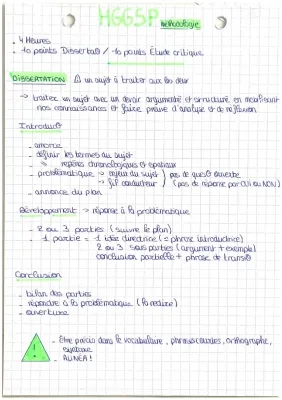 HGGSP méthodologie
. 4 Heures
. 10 points Dissertat° / 10 points Étude critique
DISSERTATION ⚠ un sujet à traiter aux
→ traitez un sujet avec un devoir argumenté et structuré en mobilisant
nos connaissances et faire preuve d'analyse et de réflexion
Introduct°
- amorce
- définir les termes du sujet
- repères chronologiques et spatiaux
- problématique → enjeu du sujet } pas de quest° ouverte
→ fil conducteur } (pas de réponse par OUI ou NON)
- annonce du plan
Développement → réponse à la problématique
- 2 ou 3 parties (suivre le plan)
- 1 partie = 1 idée directrice (= phrase introductrice)
2 ou 3 sous parties (argument + exemple)
conclusion partielle + phrase de transit°
Conclusion
- bilan des parties
- répondre à la problématique (la redire)
- ouverture
! - Être précis dans le vocabulaire, phrases courtes, orthographe,
syntaxe
- ALINÉA !